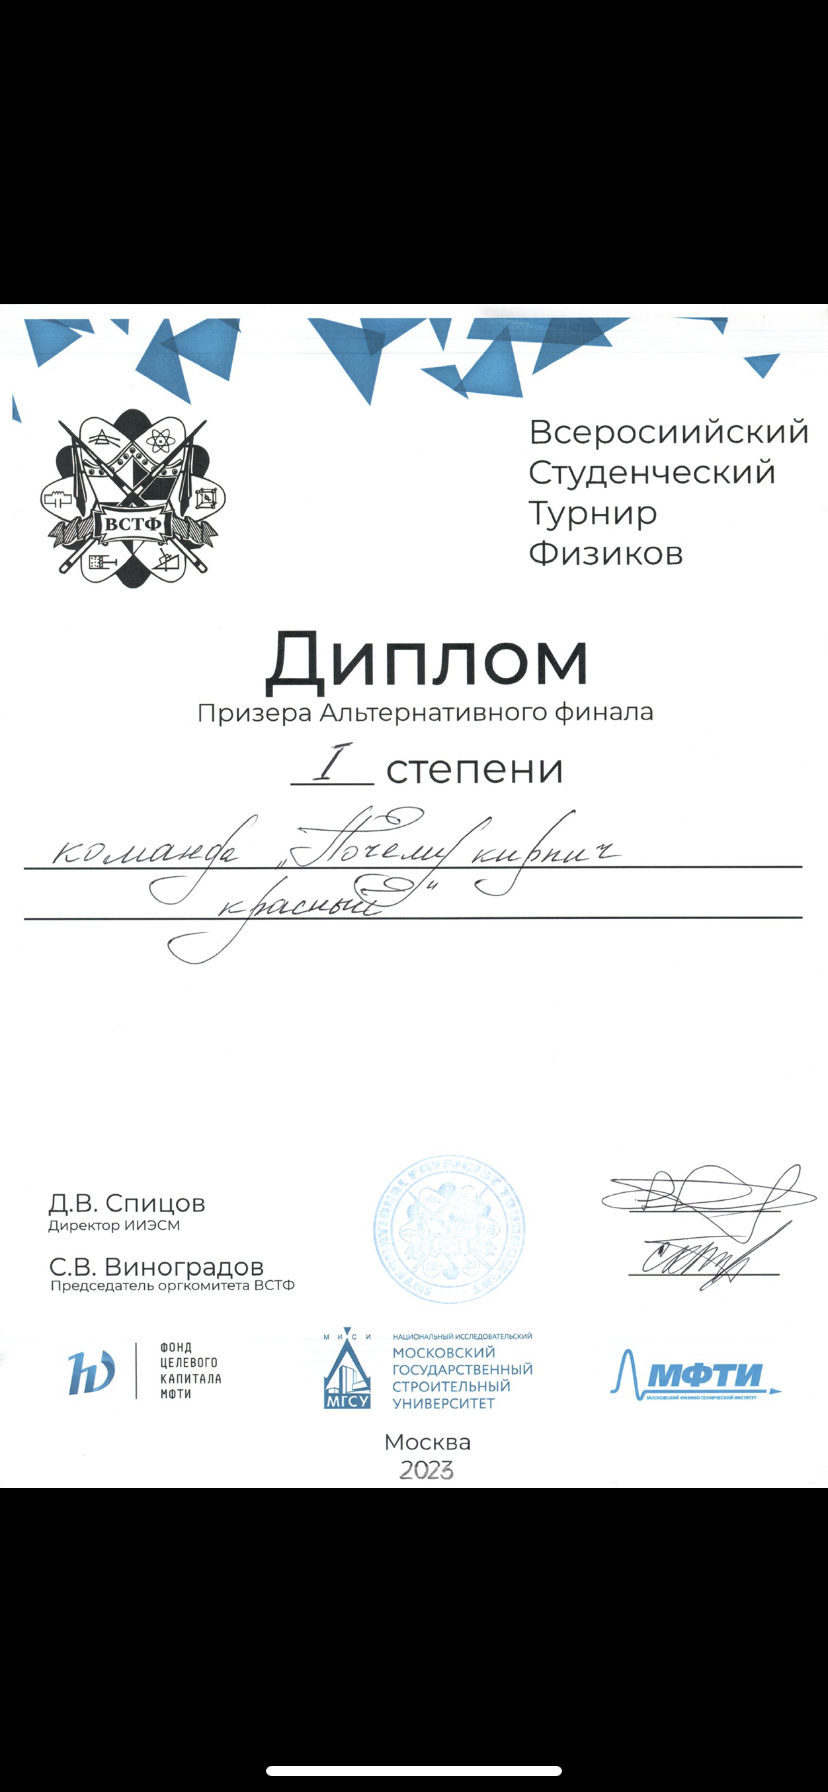 ВСТФ
Всеросиийский
Студенческий
Турнир
Физиков
Диплом
Призера Альтернативного финала
I степени
команда „Почему кирпич
красный"
Д.В. Спицов
Директор ИИЭСМ
С.В. Виноградов
Председатель оргкомитета ВСТФ
INTERNATIONAL PHYSICIST TOURNAMENT
ФОНД
ЦЕЛЕВОГО
КАПИТАЛА
МФТИ
МИСИ
МГСУ
НАЦИОНАЛЬНЫЙ ИССЛЕДОВАТЕЛЬСКИЙ
МОСКОВСКИЙ
ГОСУДАРСТВЕННЫЙ
СТРОИТЕЛЬНЫЙ
УНИВЕРСИТЕТ
МФТИ
МОСКОВСКИЙ ФИЗИКО-ТЕХНИЧЕСКИЙ ИНСТИТУТ
Москва
2023